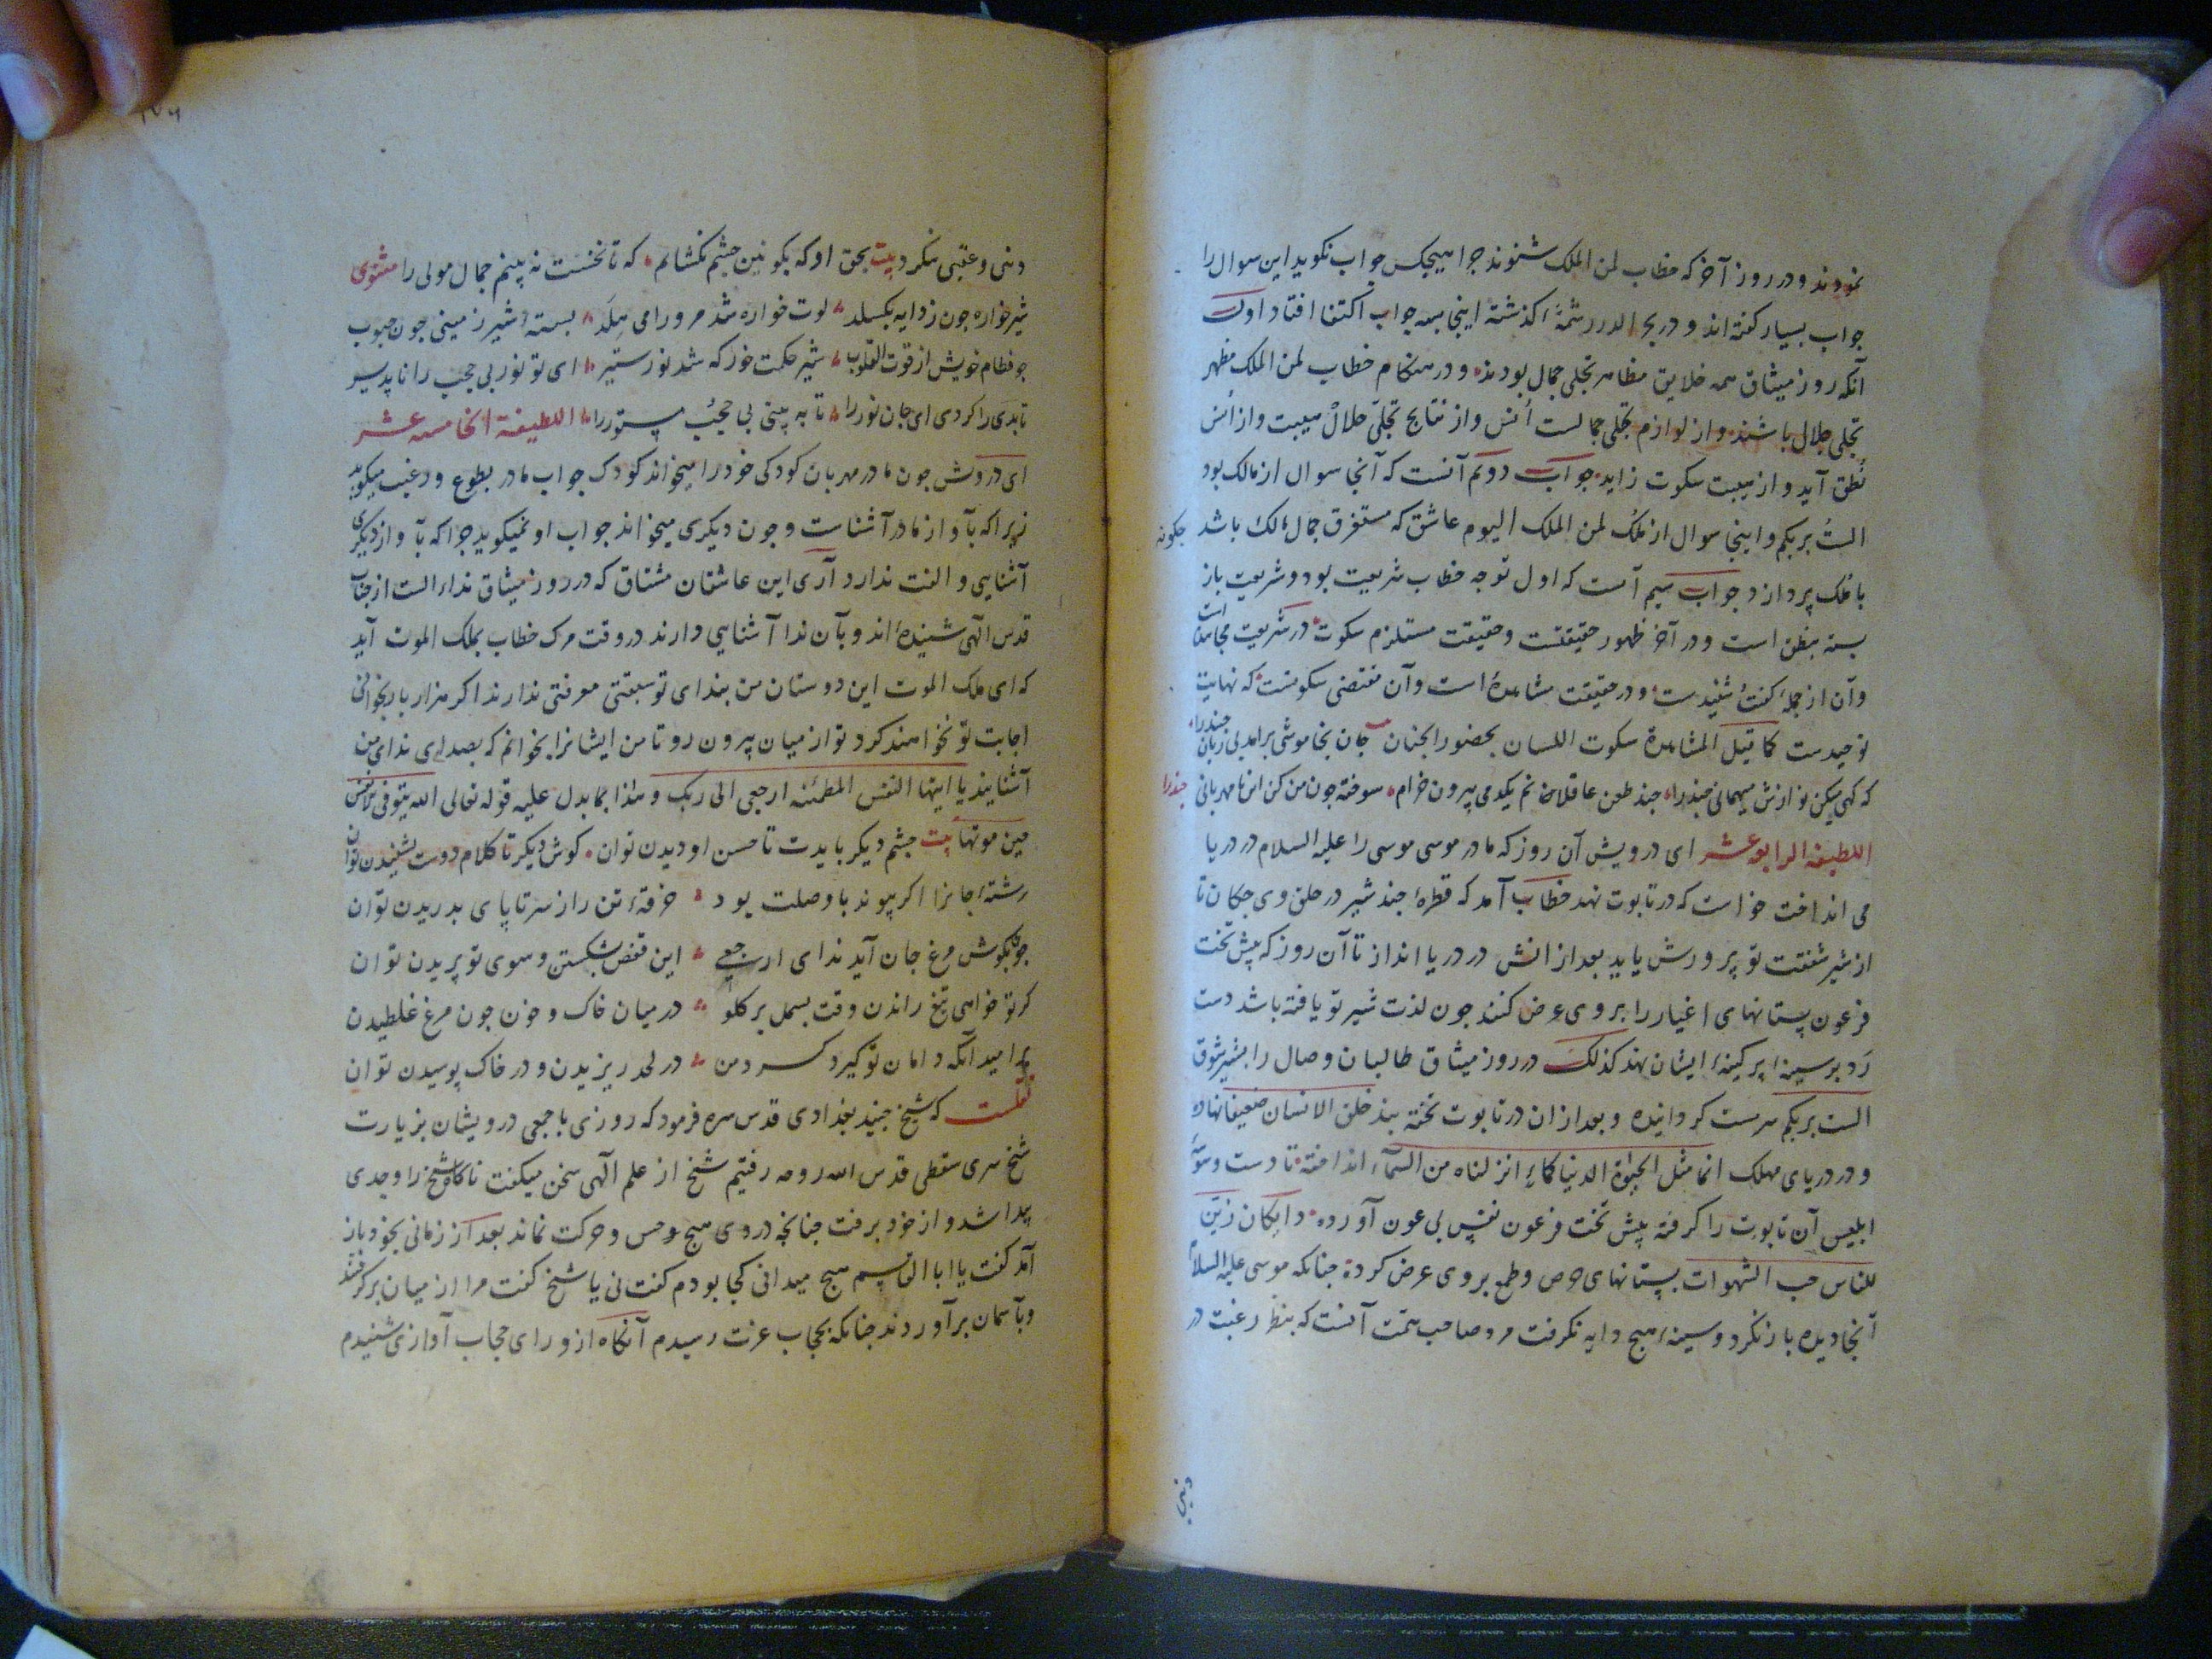 نمودند و در روز آخر که خطاب لمن الملک شنوند جرا هیجکس جواب نکوید این سوال را
جواب بسیار کفته اند و در بحر الدرر شمهٔ کذشته اینجا بسه جواب اکتفا افتاد اول
آنکه روز میثاق همه خلایق مظاهر تجلی جمال بودند و در هنکام خطاب لمن الملک مظهر
تجلی جلال باشند و از لوازم تجلی جمالست أنس و از نتایج تجلّی جلال هیبت و از أنس
نُطق آید و از هیبت سکوت زاید جواب دوّم آنست که آنجا سوال از مالک بود
الستُ بربکم و اینجا سوال از مُلک لمن الملک الیوم عاشق که مستغرق جمال مالک باشد جکونه
با مُلک پردازد جواب سیم آنست که اول توجه خطاب شریعت بود و شریعت باز
بسته بنطق است و در آخر ظهور حقیقتست و حقیقت مستلزم سکوت در شریعت مجاهده است
و آن از جملهٔ کفت شنیدست و در حقیقت مشاهدهٔ است و آن مقتضی سکوتست که نهایت
توحیدست کما قیل المشاهدة سکوت اللسان بحضور الجنان جان بخاموشی برآمد بی زبان جند را
که کهی میکن نوازش میهمانی جند را جند طعن عاقلان خانم یکدمی بیرون خرام سوخته جون من کن این نا مهربانی جند را
اللطیفة الرابعه عشر ای درویش آن روز که مادر موسی موسی را علیه السلام در دریا
می انداخت خواست که در تابوت نهد خطاب آمد که قطرهٔ جند شیر در حلق وی جکان تا
از شیر شفقت تو پرورش یابد بعد از انش در دریا انداز تا آن روز که پیش تخت
فرعون پستانهای اغیار را بروی عرض کنند جون لذت شیر تو یافته باشد دست
رَد بر سینهٔ پر کینهٔ ایشان نهد کذلک در روز میثاق طالبان وصال را بشیر شوق
الست بربکم سرمست کردانیده و بعد از ان در تابوت تخته بند خلق الانسان ضعیفا نهاده
و در دریای مهلک انما مثل الحیوة الدنیا کماءٍ انزلناه من السمآء انداخته تا دست وسوسهٔ
ابلیس آن تابوت را کرفته پیش تخت فرعون نفس بی عون آورده دایکان زیّن
للناس حب الشهوات پستانهای حرص و طمع بروی عرض کرده جنانکه موسی علیه السلام
آنجا دیده باز نکرد و سینهٔ هیج دایه نکرفت مرد صاحب همّت آنست که بنظر رغبت در
دنیی
دنیی و عقبی ننکرد بیت بحق او که بکونین جشم نکشایم که تا نخست نه بینم جمال مولی را مثنوی
شیرخواره جون ز دایه بکسلد لوت خواره شد مر ورا می هِلَد بستهٔ شیر زمینی جون حبوب
جو فطام خویش از قوت القلوب شیر حکمت خور که شد نور ستیر ای تو نور بی حجب را ناپذیر
تا پذیرا کردی ای جان نور را تا به بینی بی حجب مستور را اللطیفة الخامسه عشر
ای درویش جون مادر مهربان کودکی خود را میخواند کودک جواب مادر بطوع و رغبت میکوید
زیرا که بآواز مادر آشناست و جون دیکری میخواند جواب او نمیکوید جرا که بآواز دیکری
آشنایی و الفت ندارد آری این عاشقان مشتاق که در روز میثاق نداء الست از جناب
قدس الهی شنیدهٔ اند و بآن ندا آشنایی دارند در وقت مرک خطاب بملک الموت آید
که ای ملک الموت این دوستان من بندای تو سبقتی معرفتی ندارند اکر هزار بار بخوانی
اجابت تو نخواهند کرد تو از میان بیرون رو تا من ایشانرا بخوانم که بصدای ندای من
آشنایند یا ایتها النفس المطمئنه ارجعی الی ربک و هذا مما یدل علیه قوله تعالی الله یتوفی الانفس
حین موتها بیت جشم دیکر بایدت تا حسن او دیدن توان کوش دیکر تا کلام دوست بشنیدن توان
رشتهٔ جانرا اکر پیوند با وصلت بود خرقهٔ تن را ز سر تا پای بدریدن توان
جون بکوش مرغ جان آید ندای ارجعی این قفص بشکستن و سوی تو پریدن توان
کر تو خواهی تیغ راندن وقت بسمل بر کلو در میان خاک و خون جون مرغ غلطیدن
بر امید آنکه دامان تو کیرد کرد من در لحد ریزیدن و در خاک پوسیدن توان
نقلست که شیخ جنید بغدادی قدس سره فرمود که روزی با جمعی درویشان بزیارت
شیخ سری سقطی قدس الله روحه رفتیم شیخ از علم الهی سخن میکفت ناکاه شیخ را وجدی
پیدا شد و از خود برفت جنانچه در وی هیج حس و حرکت نماند بعد از زمانی بخود باز
آمد کفت یا ابا القسم هیج میدانی کجا بودم کفت نی یا شیخ کفت مرا از میان برکرفتند
و بآسمان برآوردند جنانکه بحجاب عزت رسیدم آنکاه از ورای حجاب آوازی شنیدم